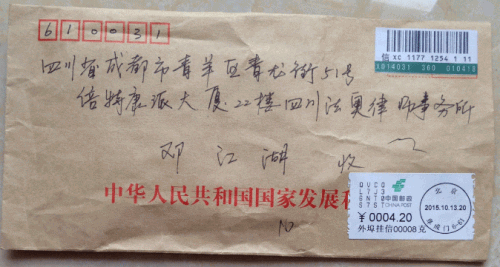 610031
信 XC 1177 1254 1 11
四川省成都市青羊区青龙街51号
倍特康派大厦22楼四川法奥律师事务所
邓 江 湖 收
中华人民共和国国家发展和
中国邮政
CHINA POST
¥0004.20
外埠挂信00008克
北京
2015.10.13.20
10